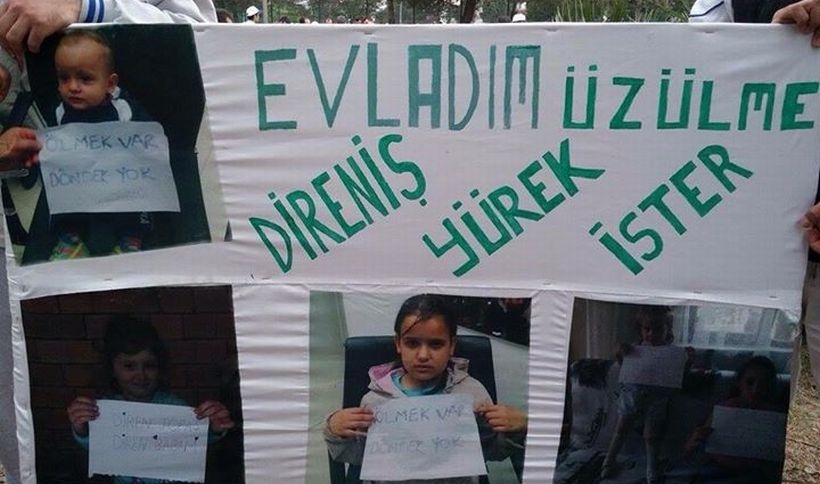 EVLADIM ÜZÜLME
DİRENİŞ YÜREK İSTER
ÖLMEK VAR
DÖNMEK YOK
DİREN
DİREN BABAM
ÖLMEK VAR
DÖNMEK YOK